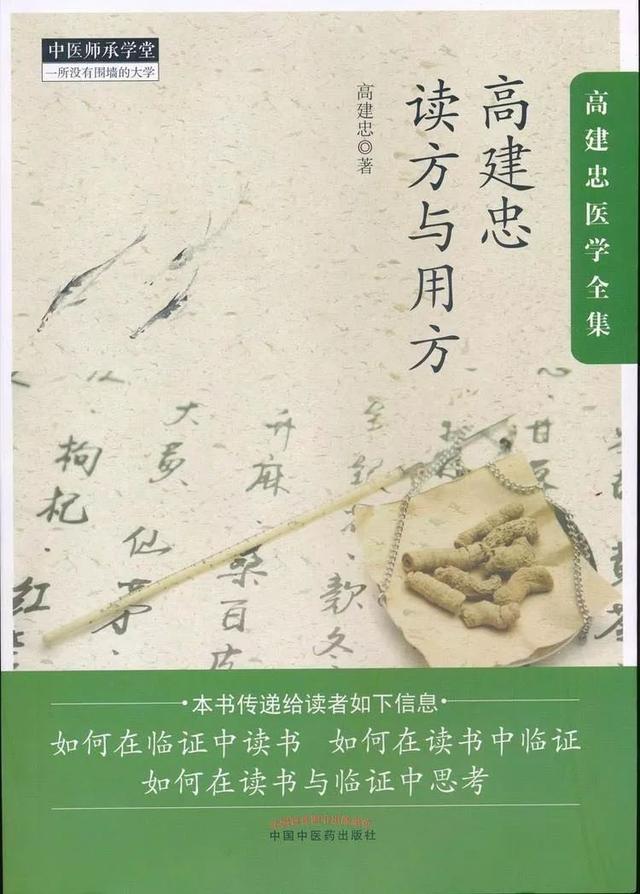 中医师承学堂
一所没有围墙的大学
高建忠医学全集
高建忠
读方与用方
高建忠◎著
枸杞
红
大黄
仙茅
升麻
桑百皮
款冬
甘
·本书传递给读者如下信息·
如何在临证中读书 如何在读书中临证
如何在读书与临证中思考
中国中医药出版社